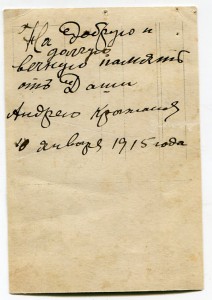 На добрую и
долгую
вечную память
отъ Даши
Андрею
января 1915 года